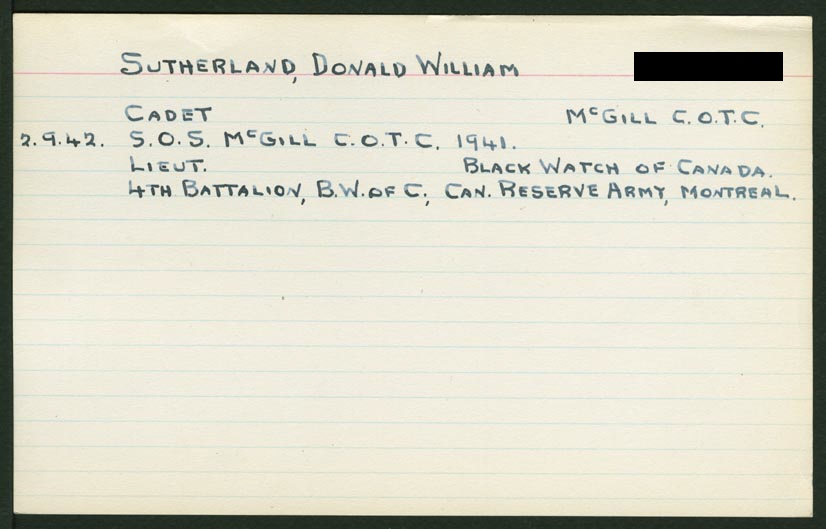 SUTHERLAND, DONALD WILLIAM
CADET McGILL C.O.T.C.
2.9.42. S.O.S. McGILL C.O.T.C. 1941.
LIEUT. BLACK WATCH OF CANADA.
4TH BATTALION, B.W. OF C., CAN. RESERVE ARMY, MONTREAL.